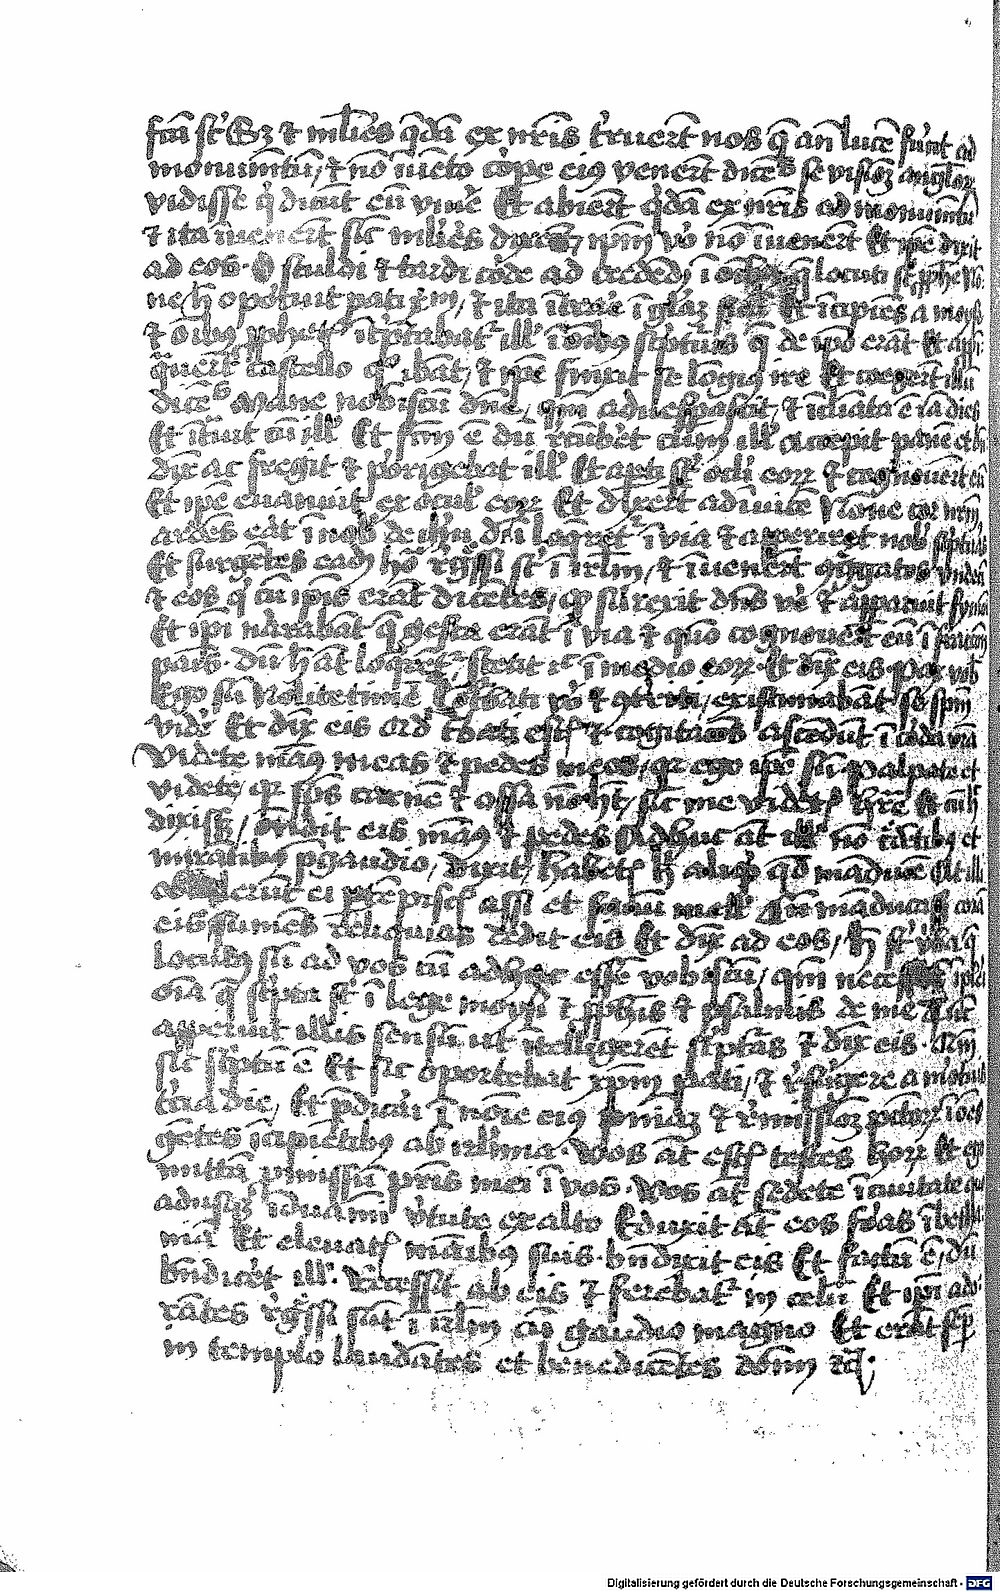 fcā st' Sz ⁊ mlīes q̄dā ex nr̄is t'ruert nos q̄ an̄ lucē fūnt ad
monumtū, ⁊ nō īuēto cōpe eiꝰ venert dicēs se visiōz angloꝝ
vidisse q' dicūt eū viu'e Et abiert q'dā ex nr̄is ad monumtū
⁊ ita īuenert sic mlīes dixert, ipm v'o nō īuenert Et ipē dixit
ad eos. O stulti ⁊ tardi cōde ad crededū ī oībꝫ q̄ locuti st' pphe No
ne h̄ oportuit pati xp̄m, ⁊ ita ītrare ī gl'az suā Et īcipiēs a moyse
⁊ oībꝫ pphet' īt'p̄tabat' ill' ī oībꝫ sc'ptur̄is q̄ de ipō erāt Et app
q̄uert castello q° ibāt, ⁊ ipē finxit se lōgiꝰ ire Et coegert illū
dicētes Mane nobiscū dn̄e, qm̄ aduesp̄ascit, ⁊ īclīata ē ia dies
Et ītuit cū ill' Et fcm̄ ē dū rēcūbēt cūm ill' accepit panē et bn̄
dix̄ ac fregit ⁊ porigebat ill' Et apti st' ocli eoꝝ ⁊ cognouert eū
Et ipē euanuit ex ocul' eoꝝ Et dixert adīuicē Nōne cor nrm̄
ardēs eāt ī nob' de ihu dū loq̄ret' ī via ⁊ apperiret nob' sc'pturas
Et surgētes eadē hō rēgssi st' ī irlm̄, ⁊ īuenert ꝯggatos vndecī
⁊ eos q' cū ipīs erāt dicētes, qꝫ surrexit dn̄s ve' ⁊ appauit symoi
Et ipī narrabāt q̄ gesta erāt ī via ⁊ quō cognouert eū ī fraccōe
pāis. dū h̄ at' loq̄ret', stetit ic' ī medio eoꝝ. Et dix̄ eis Pax vob'
Ego sū Nolite timē Cōt'bati v'o ⁊ ꝯt'riti, existimabāt se spm̄
vidē Et dix̄ eis Qid t'bati estꝭ ⁊ cogitacōes ascēdūt ī corda vrā
Videte māꝰ meas ⁊ pedes meos, qꝛ ego ipē sū Palpate et
videte, qꝛ sp̄s carnē ⁊ ossa nō h̄t, sic me videtꝭ h̄re Et cū h̄
dixissꝫ, on̄dit eis māꝰ ⁊ pedes Adhuc at' ill' nō credētibꝫ et
mirātibꝫ p̄ gaudio, dixit, habetꝭ h̄ aliqꝫ qd̄ māducē At illi
obtulerūt ei ptē piscꝭ assi et fauū mell' Et cū māducassꝫ corā
eis, sumēs reliquias dedit eis Et dix̄ ad eos, h̄ st' vba q̄
locutꝰ sū ad vos cū adhuc essē vobiscū, qm̄ necesse īpleri
oīa q̄ sc'pta st' ī lege moysi ⁊ pphis ⁊ psalmis de me Tūc
apperuit illis sensū ut ītelligerēt sc'ptas ⁊ dix̄ eis. Qm̄
sic sc'ptū ē Et sic oportebat xp̄m pati, ⁊ r'surgere a mortuis
t'cia die, Et p̄dicai ī noīe eiꝰ pniaz ⁊ r'missiōz pctoꝝ ī oēs
gētes īcipiētibꝫ ab irl'ima. Vos at' estꝭ testes horꝝ Et ego
mittā p̄missū pr̄is mei ī vos. Vos at' sedete ī ciuitate quo
adusqꝫ īduamī v'tute ex alto Eduxit at' eos foras ī betha
niā Et eleuatꝭ mānibꝫ suis. bn̄dixit eis Et factū ē, dū
bn̄dicēt ill'. Recessit ab eis ⁊ ferebat' in celū Et ipī ado
rātes rēgssi sūt ī irlm̄ cū gaudio magno Et erāt sēp
in templo laudātes et benedicētes dom̄ ꝛc̄.
Digitalisierung gefördert durch die Deutsche Forschungsgemeinschaft - DFG